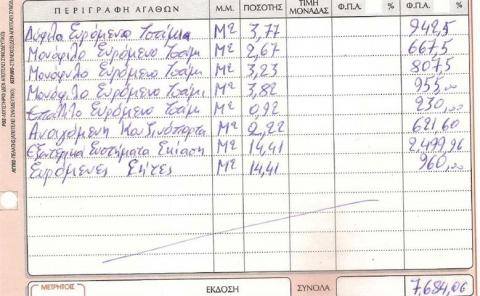 ΠΕΡΙΓΡΑΦΗ ΑΓΑΘΩΝ Μ.Μ. ΠΟΣΟΤΗΣ ΤΙΜΗ ΜΟΝΑΔΟΣ Φ.Π.Α. % Φ.Π.Α. %
Συρόμενο Τσάμια Μ² 3,77 942,5
Μονόφυλο Συρόμενο Τσάμι Μ² 2,67 667,5
Μονόφυλο Συρόμενο Τσάμι Μ² 3,23 807,5
Μονόφυλο Συρόμενο Τσάμι Μ² 3,82 955,00
Συρόμενο Τσάμι Μ² 0,92 230,00
Ανοιγόμενη Μ² 2,22 621,60
Εξωτερικά Συστήματα Σκίαση Μ² 14,41 2.499,96
Συρόμενες Σήτες Μ² 14,41 960,00
ΜΕΤΡΗΤΟΙΣ ΕΚΔΟΣΗ ΣΥΝΟΛΑ 7.684,06